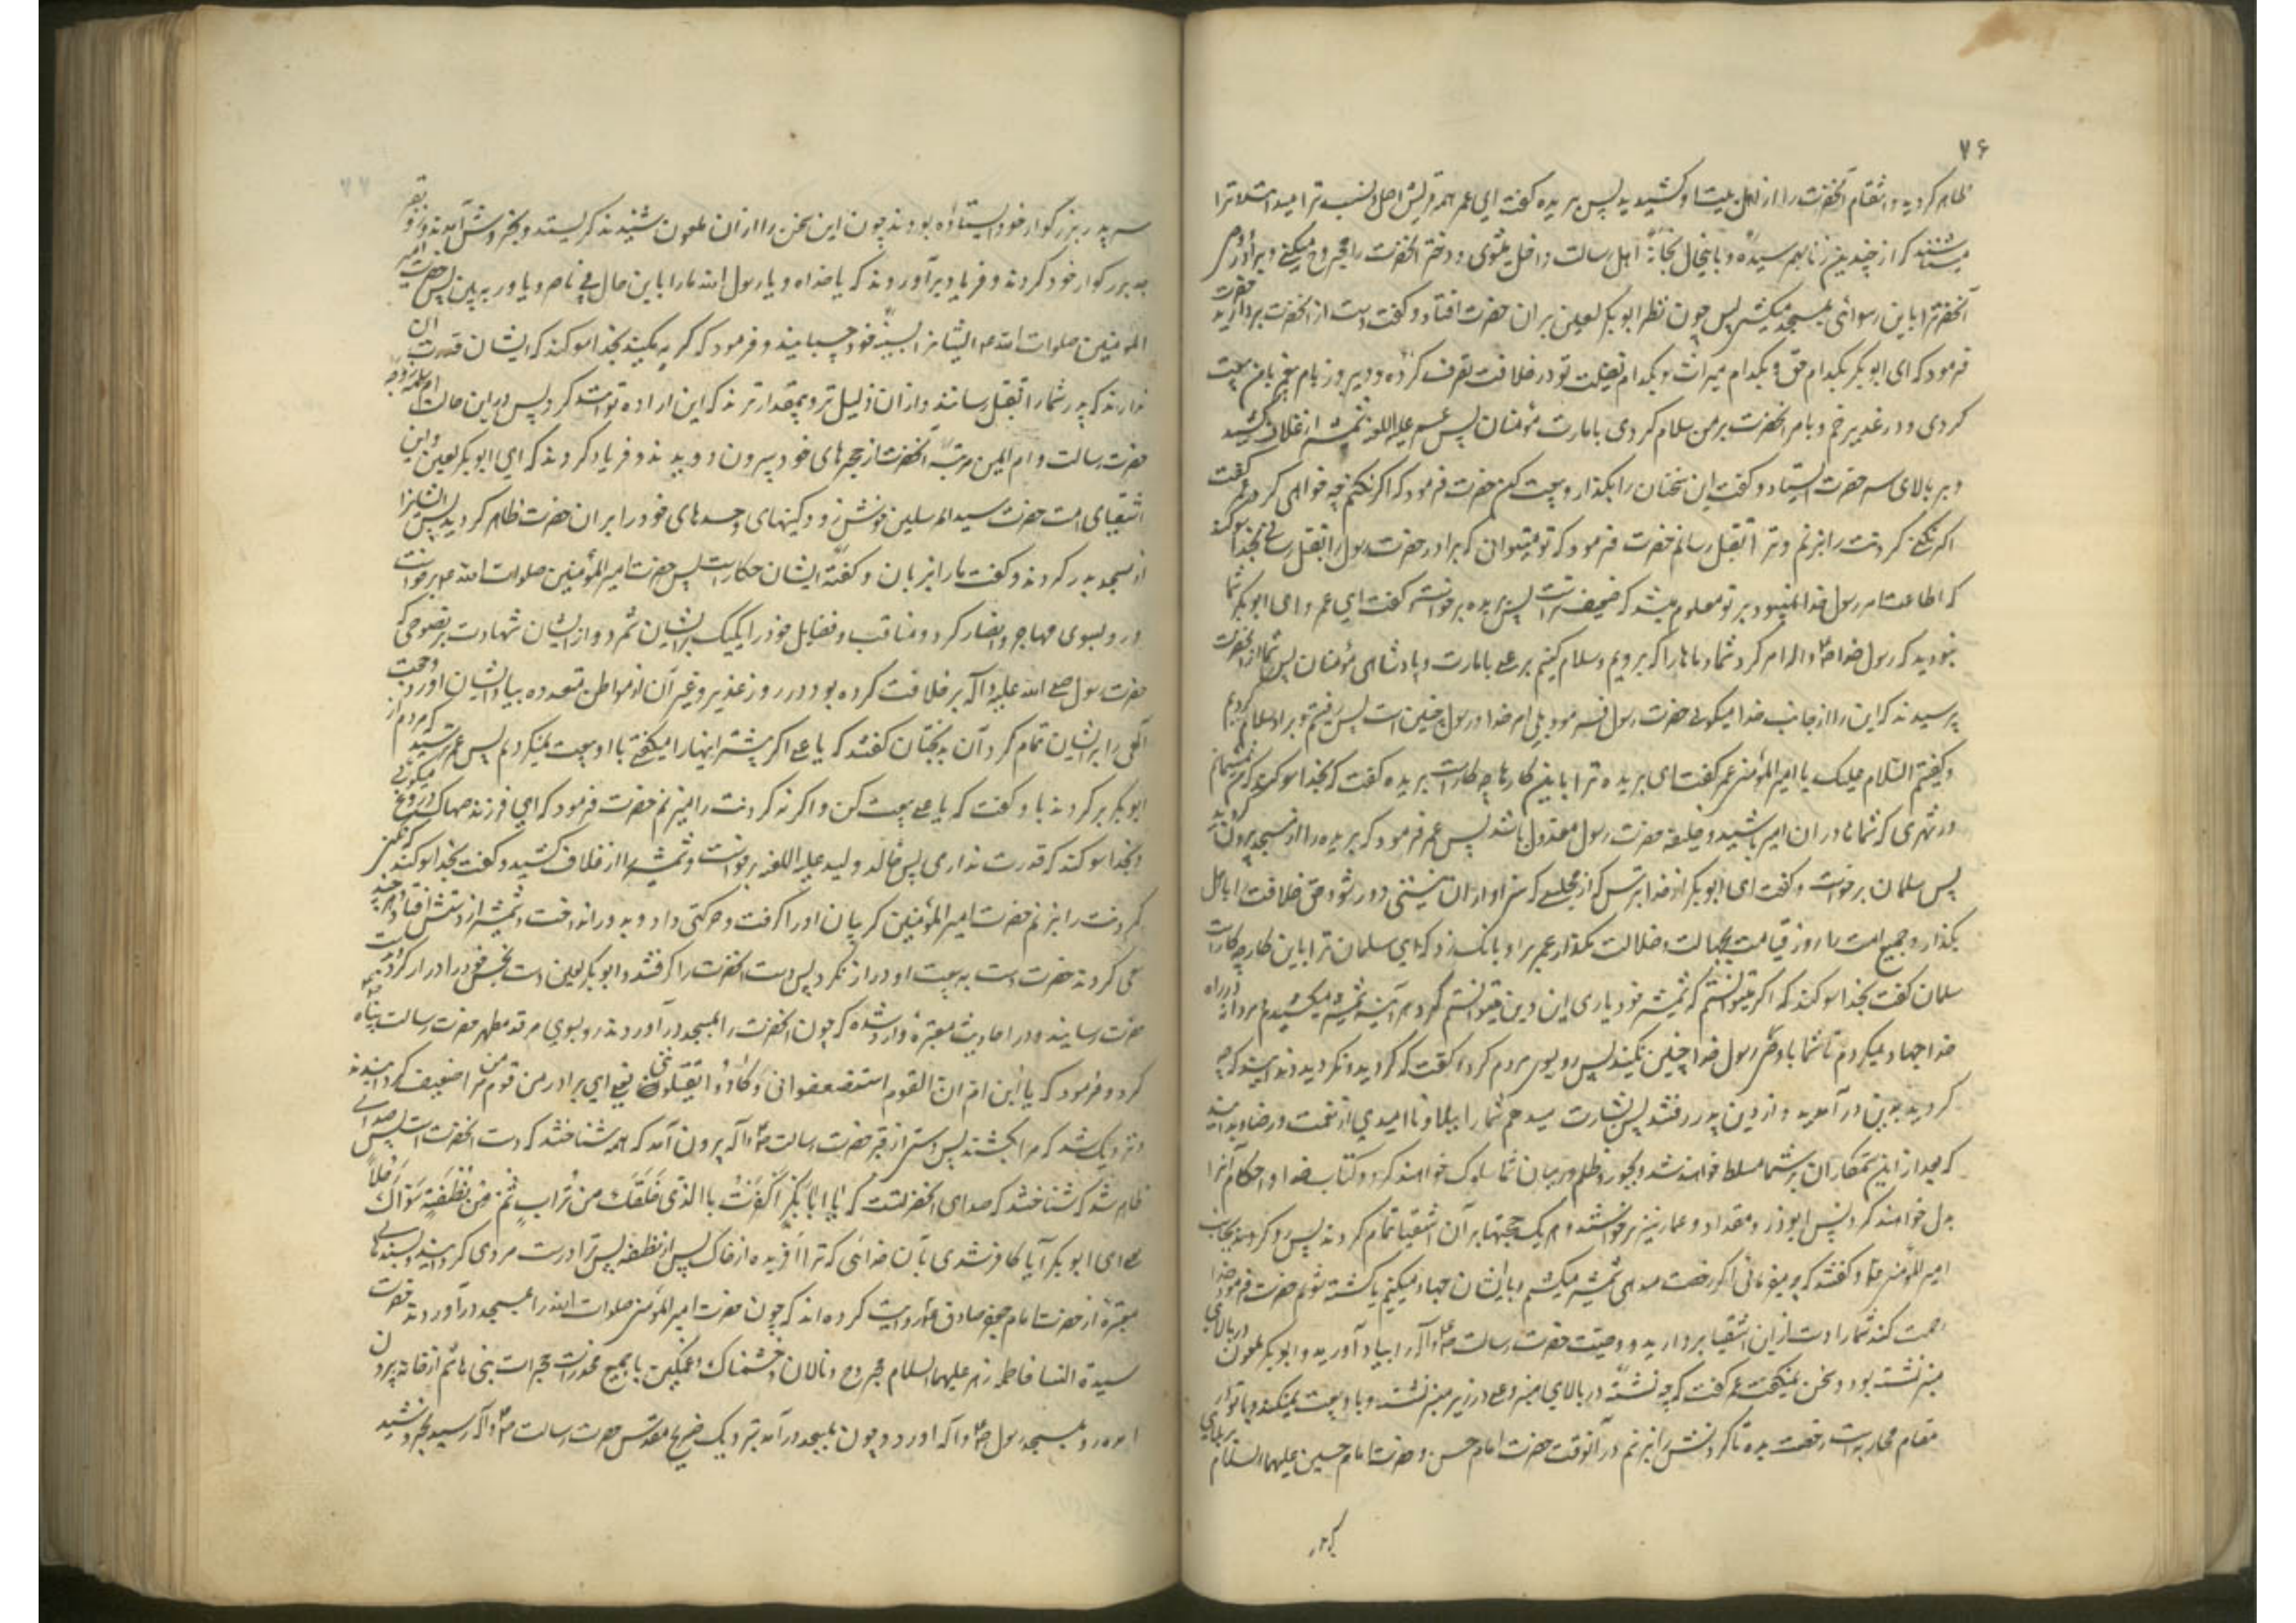 ۷۶
ظاهر کردید و انتقام آنحضرت را از اهل بیت او کشیدید پس بریده گفت ای عمر همه قریش اصل و نسب ترا میدانند و ترا
میشناسند که از چندین زنا بهم رسیده و باینحال بخانهٔ اهل رسالت داخل میشوی و دختر آنحضرت را مجروح میکنی و برادر
آنحضرترا باین رسوائی بمسجد میکشی پس چون نظر ابو بکر لعین بر ان حضرت افتاد و گفت دست از آنحضرت بردارید حضرت
فرمود که ای ابو بکر بکدام حق و بکدام میراث و بکدام فضیلت تو در خلافت تصرف کرده و دیروز بام پیغمبر بامن بیعت
کردی و در غدیر خم و بامر آنحضرت بر من سلام کردی بامارت مؤمنان پس عمر علیه اللعنه شمشیر از غلاف کشید
و بر بالای سر حضرت ایستاد و گفت این سخنان را بگذار و بیعت کن حضرت فرمود که اگر نکنم چه خواهی کرد عمر گفت
اکر نکنی کردنت را بزنم و ترا بقتل رسانم حضرت فرمود که تو میتوانی که برادر حضرت رسول را بقتل رسانی بخدا سوکند
که اطاعت امر رسول خدا نمیبود بر تو معلوم میشد که ضعیف تر است پس بریده برخواست و گفت ای عمر و ای ابو بکر شما
نبودید که رسول خدا ص و اله امر کرد شما و ماها را که برویم و سلام کنیم بر علی بامارت و پادشاهی مؤمنان پس شما از آنحضرت
پرسیدند که این را از جانب خدا میکوئی حضرت رسول فرمود بلی امر خدا و رسول چنین است پس رفتیم و بر او سلام کردیم
و کفتیم السلام علیک یا امیر المؤمنین عمر گفت ای بریده ترا باین کارها چه کار است بریده گفت که بخدا سوکند که من نمیمانم
در شهری که شما در ان امیر باشید و خلیفه حضرت رسول معزول باشد پس عمر فرمود که بریده را از مسجد بیرون کردند
پس سلمان برخواست و گفت ای ابو بکر از خدا بترس که از مجلسی که سزاوار ان نیستی دور شو و حق خلافت را باهل
بگذار و جمیع امت را تا روز قیامت بجهالت و ضلالت مگذار عمر بر او بانک زد که ای سلمان ترا باین کار چه کار است
سلمان گفت بخدا سوکند که اگر میتوانستم که شمشیر خود یاری این دین میتوانستم کرد هر آینه شمشیر میکشیدم و مردانه در راه
خدا جهاد میکردم تا شما با وصی رسول خدا چنین نکنید پس رو بسوی مردم کرد و گفت که کردید و نکردید و ندانید که چه
کردید بدین در آمدید و از دین بدر رفتید پس بشارت میدهم شما را ببلا و ناامیدی از نعمت و رضا و بدانید
که بعد از این ستمکاران بر شما مسلط خواهند شد و بجور و ظلم در میان شما سلوک خواهند کرد و کتاب خدا و احکام آنرا
بدل خواهند کرد پس ابوذر و مقداد و عمار نیز برخواستند و هر یک حجتها بر آن اشقیا تمام کردند پس رو کردند بجانب
امیر المؤمنین و گفتند که چه میفرمائی اگر رخصت میدهی شمشیر میکشیم و با ایشان جهاد میکنیم یا کشته شویم حضرت فرمود خدا
رحمت کند شما را دست از این اشقیا بردارید و وصیت حضرت رسالت ص و آله را بیاد آورید و ابو بکر ملعون در بالای
منبر نشسته بود و سخن نمیگفت عمر گفت که چه نشستهٔ در بالای منبر و علی در زیر منبر نشسته و با تو بیعت نمیکند و با تو در
مقام محاربه است رخصت بده تا گردنش را بزنم در آنوقت حضرت امام حسن و حضرت امام حسین علیهما السلام بر بالای
۷۷
سر پدر بزرگوار خود ایستاده بودند چون این سخن را از ان ملعون شنیدند کریستند و بخروش آمدند و رو بقبر
جد بزرکوار خود کردند و فریاد برآوردند که یا جداه و یا رسول الله ما را باین حال بی ناصر و یاور به بین پس حضرت امیر
المؤمنین صلوات الله علیه ایشانرا بسینهٔ خود چسبانید و فرمود که گریه مکنید بخدا سوکند که ایشان قدرت ان
ندارند که پدر شما را بقتل رسانند و از ان ذلیل تر و بیمقدار ترند که این اراده توانند کرد پس در این حالت ام سلمه زوجه
حضرت رسالت و ام ایمن مربیهٔ آنحضرت از حجرهای خود بیرون دویدند و فریاد کردند که ای ابو بکر لعین و این
اشقیای امت حضرت سید المرسلین خوش زود کینهای و حسدهای خود را بر ان حضرت ظاهر کردید پس ایشانرا
از مسجد بدر کردند و گفت ما را بزبان و گفتهٔ ایشان چکار است پس حضرت امیر المؤمنین صلوات الله علیه برخواست
و رو بسوی مهاجر و انصار کرد و مناقب و فضایل خود را یکیک بر ایشان شمرد و از ایشان شهادت بر نصوصی که
حضرت رسول صلی الله علیه و آله بر خلافت کرده بود در روز غدیر و غیر آن از مواطن متعدده بیاد ایشان آورد و حجت
الهی را بر ایشان تمام کرد آن بدبختان گفتند که یا علی اگر پیشتر اینها را میکفتی با او بیعت نمیکردیم پس عمر ترسید که مردم از
ابو بکر برکردند باو گفت که یا علی بیعت کن و اگر نه کردنت را میزنم حضرت فرمود که ای فرزند صهاک دروغ میکوئی
بخدا سوکند که قدرت نداری پس خالد ولید علیه اللعنه برخواست و شمشیر را از غلاف کشید و گفت بخدا سوکند که اگر نکنی
کردنت را بزنم حضرت امیر المؤمنین کریبان او را گرفت و حرکتی داد و بدور انداخت و شمشیر از دستش افتاد و هر چند
سعی کردند حضرت دست به بیعت او دراز نکرد پس دست آنحضرت را گرفتند و ابو بکر لعین دست نجس خود را دراز کرد و بدست
حضرت رسانید و در احادیث معتبره وارد شده که چون آنحضرت را بمسجد در آوردند رو بسوی مرقد مطهر حضرت رسالت پناه نمود
کرد و فرمود که یا ابن ام ان القوم استضعفوانی و کادوا یقتلوننی یعنی ای برادر من قوم من مرا ضعیف کردانیدند
و نزدیک شد که مرا بکشند پس دستی از قبر حضرت رسالت ص و آله بیرون آمد که همه شناختند که دست آنحضرت است پس صدائی
ظاهر شد که شناختند که صدای آنحضرتست که یا ابا بکر اکفرت بالذی خلقک من تراب ثم من نطفة سواک رجلا
یعنی ای ابو بکر آیا کافر شدی بآن خدائی که ترا آفریده از خاک پس از نطفه پس ترا درست مردی کردانید و بسندهای
معتبره از حضرت امام جعفر صادق ع روایت کرده اند که چون حضرت امیر المؤمنین صلوات الله را بمسجد درآوردند حضرت
سیدة النسا فاطمه زهرا علیها السلام مجروح و نالان و خشمناک و غمگین با جمیع مخدرات حجرات بنی هاشم از خانه بیرون
آمد و رو بمسجد رسول ص و آله آورد و چون بمسجد درآمد بنزدیک ضریح مقدس حضرت رسالت ص و آله رسید بخروشید